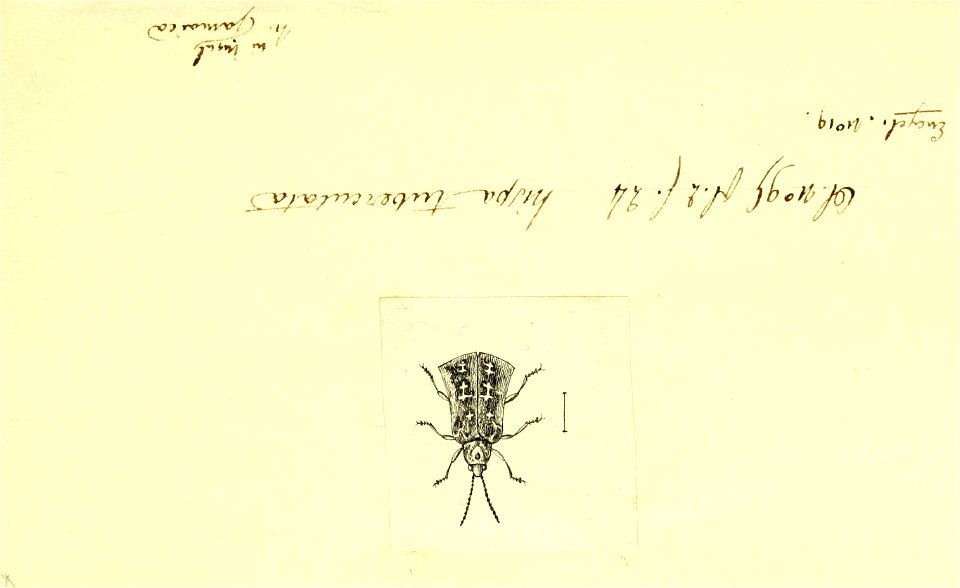 Ol. no 95 pl. 2 f. 24 hispa tuberculata
Encycl. no 19.
in insul
Jamaica